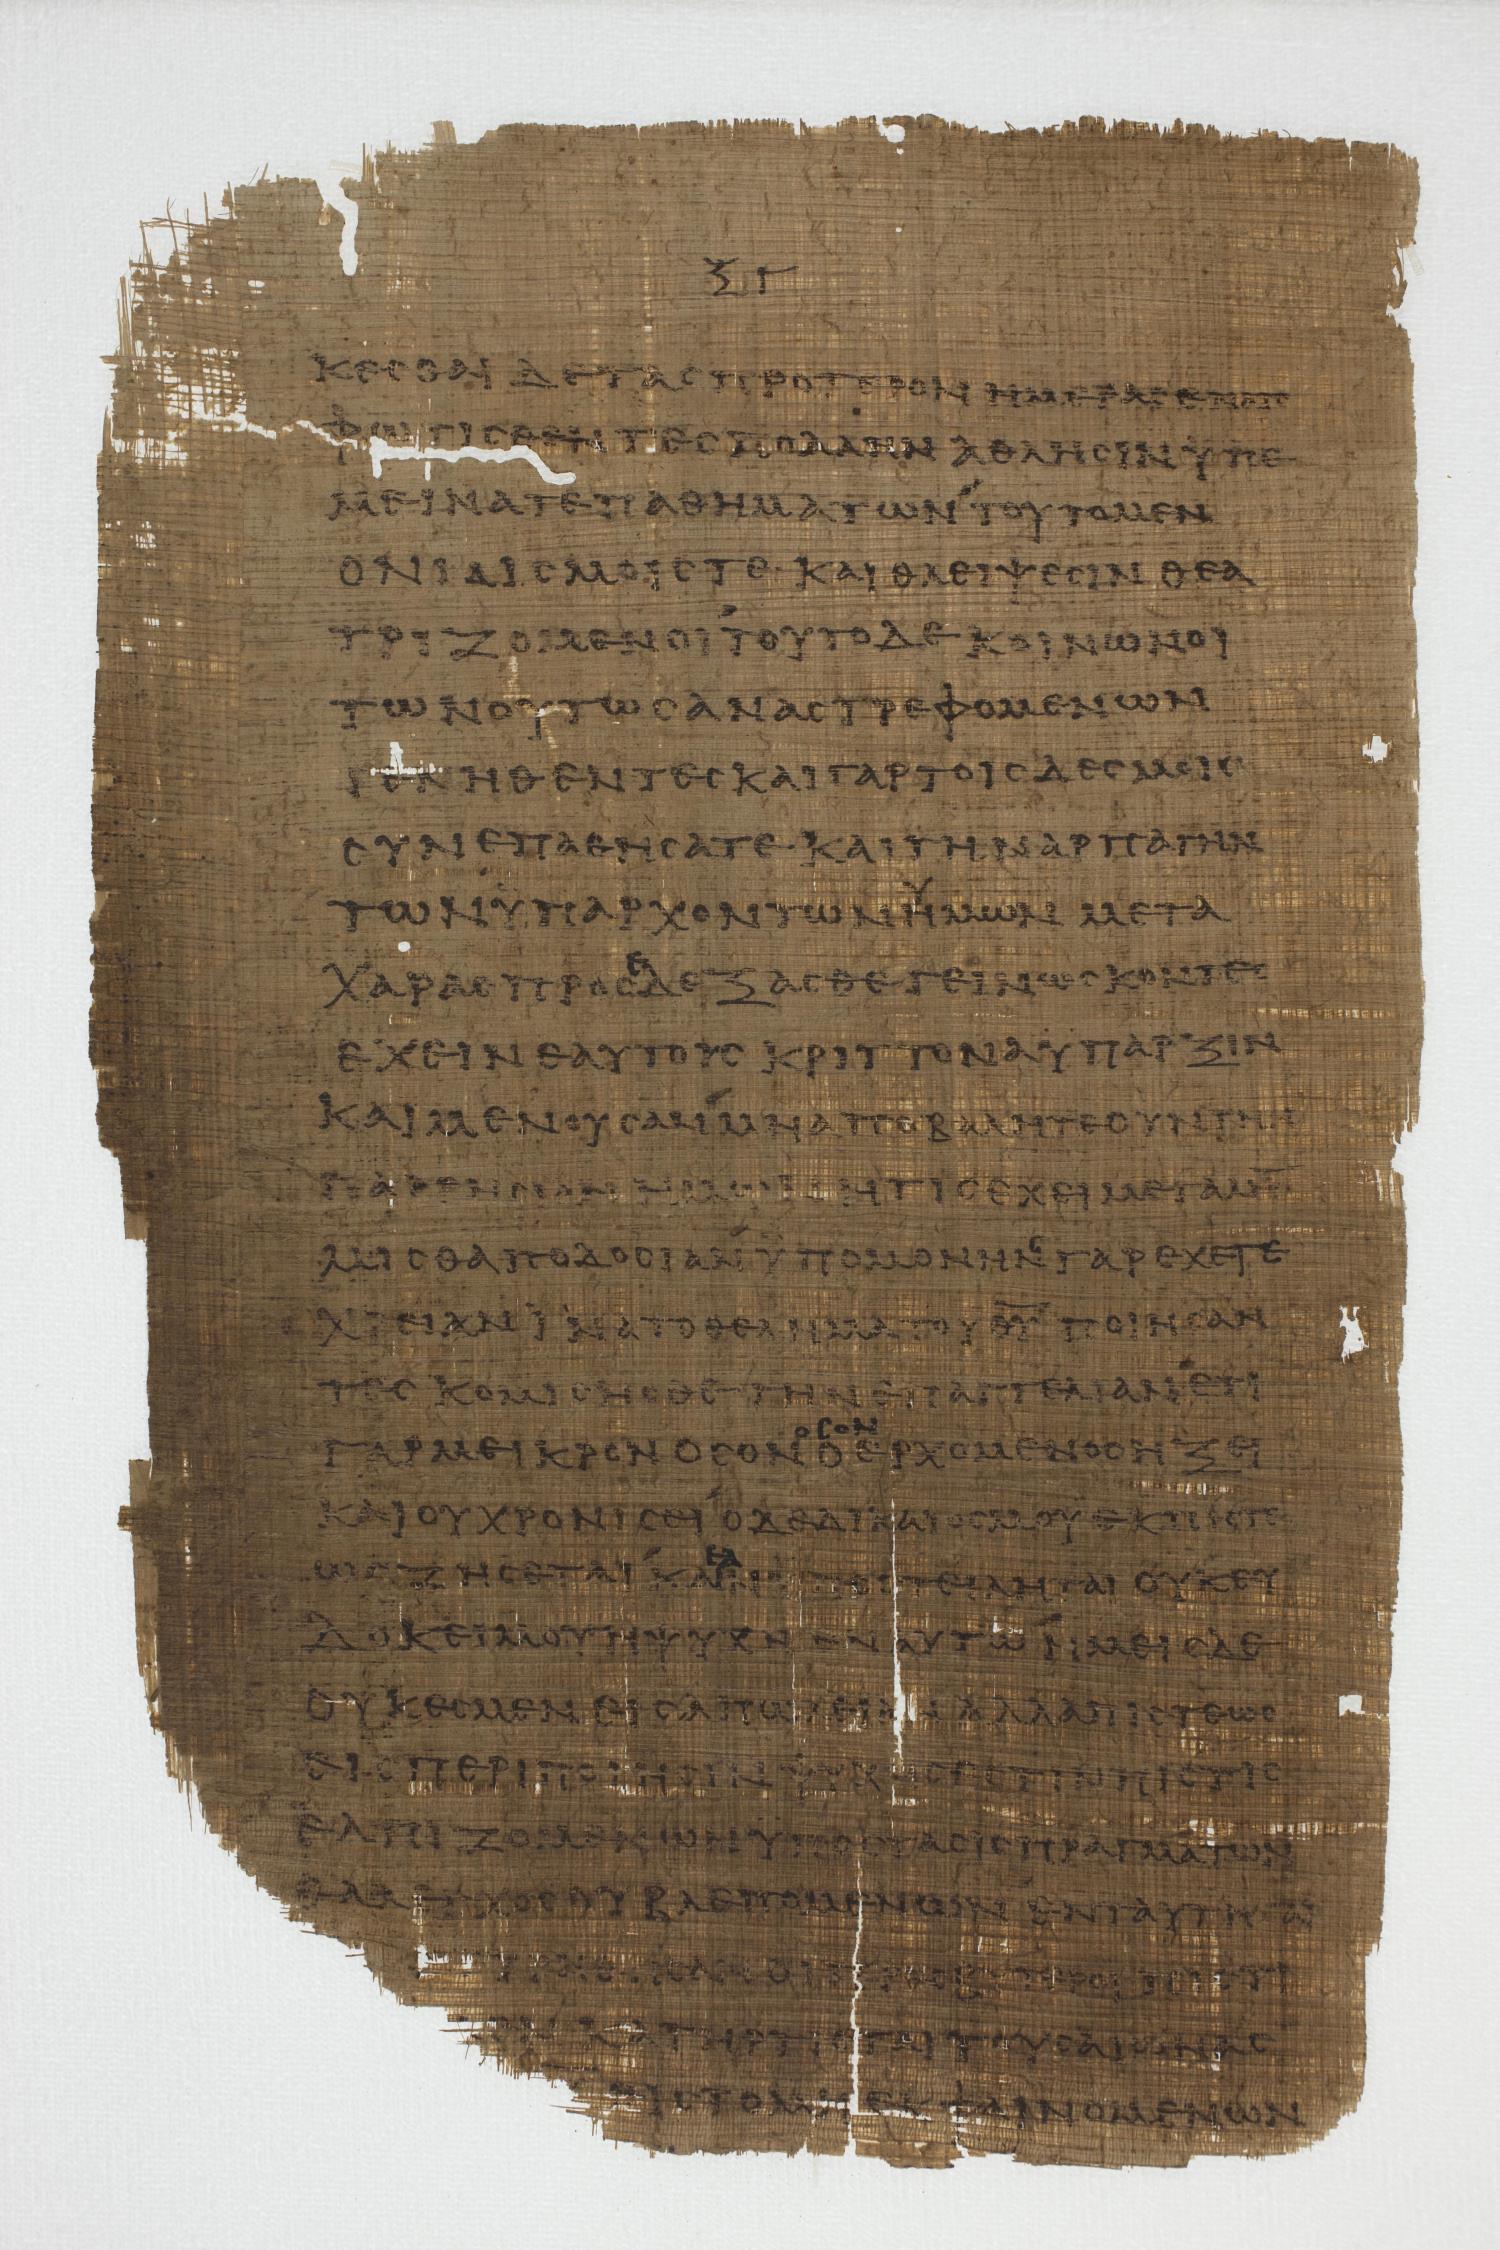 ξγ
κεσθαι δε τας προτερον ημερας εν αις
φωτισθεντες πολλην αθλησιν υπε
μεινατε παθηματων τουτο μεν
ονιδισμοις τε και θλειψεσιν θεα
τριζομενοι τουτο δε κοινωνοι
των ουτως αναστρεφομενων
γενηθεντες και γαρ τοις δεσμοις
συνεπαθησατε και την αρπαγην
των ϋπαρχοντων ϋμων μετα
χαρας προσεδεξασθε γεινωσκοντες
εχειν εαυτους κριττονα ϋπαρξιν
και μενουσαν μη αποβαλητε ουν την
παρρησιαν ητις εχει μεγαλη
μισθαποδοσιαν ϋπομονην γαρ εχετε
χρειαν ϊνα το θελημα του θ̅υ̅ ποιησαν
τες κομισησθε την επαγγελιαν ετι
γαρ μεικρον οσον οσον ο ερχομενος ηξει
και ου χρονισει ο δε δικαιος μου εκ πιστε
ως ζησεται και εαν υποστειληται ουκ ευ
δοκει μου η ψυχη εν αυτω ημεις δε
ουκ εσμεν εις απωλειαν αλλα πιστεως
εις περιποιησιν ψυχης εστιν πιστις
ελπιζομενων ϋποστασις πραγματων
ελεγχος ου βλεπομενων εν ταυτη
οι πρεσβυτεροι πιστι
κατηρτισται τους αιωνας
εις το μη εκ φαινομενων